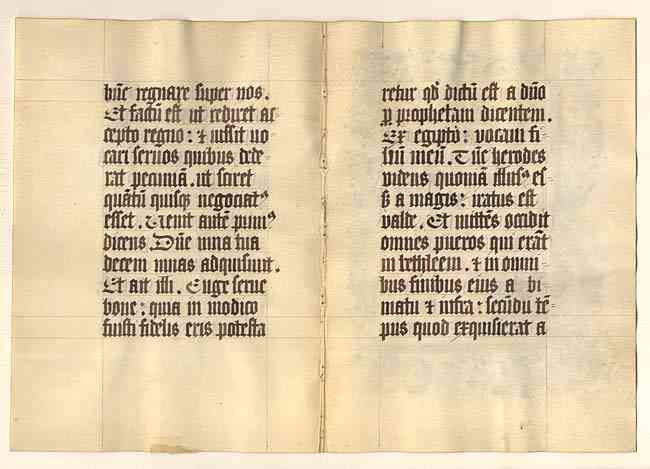 hũc regnare super nos.
Et factũ est ut rediret ac
cepto regno: ⁊ iussit uo
cari seruos quibus dede
rat pecuniã. ut sciret
quãtũ quisqꝫ negociatꝰ
esset. Uenit autẽ primꝰ
dicens Dñe mna tua
decem mnas adquisiuit.
Et ait illi. Euge serue
bone: quia in modico
fuisti fidelis eris potesta
retur qđ dictũ est a dño
ꝑ prophetam dicentem.
Ex egypto: uocaui fi
liũ meũ. Tũc herodes
uidens quoniã illusꝰ es
a magis: iratus est
valde. Et mittẽs occidit
omnes pueros qui erãt
in bethleem. ⁊ in omni
bus finibus eius a bi
matu ⁊ infra: secũdu tẽ
pus quod exquisierat a